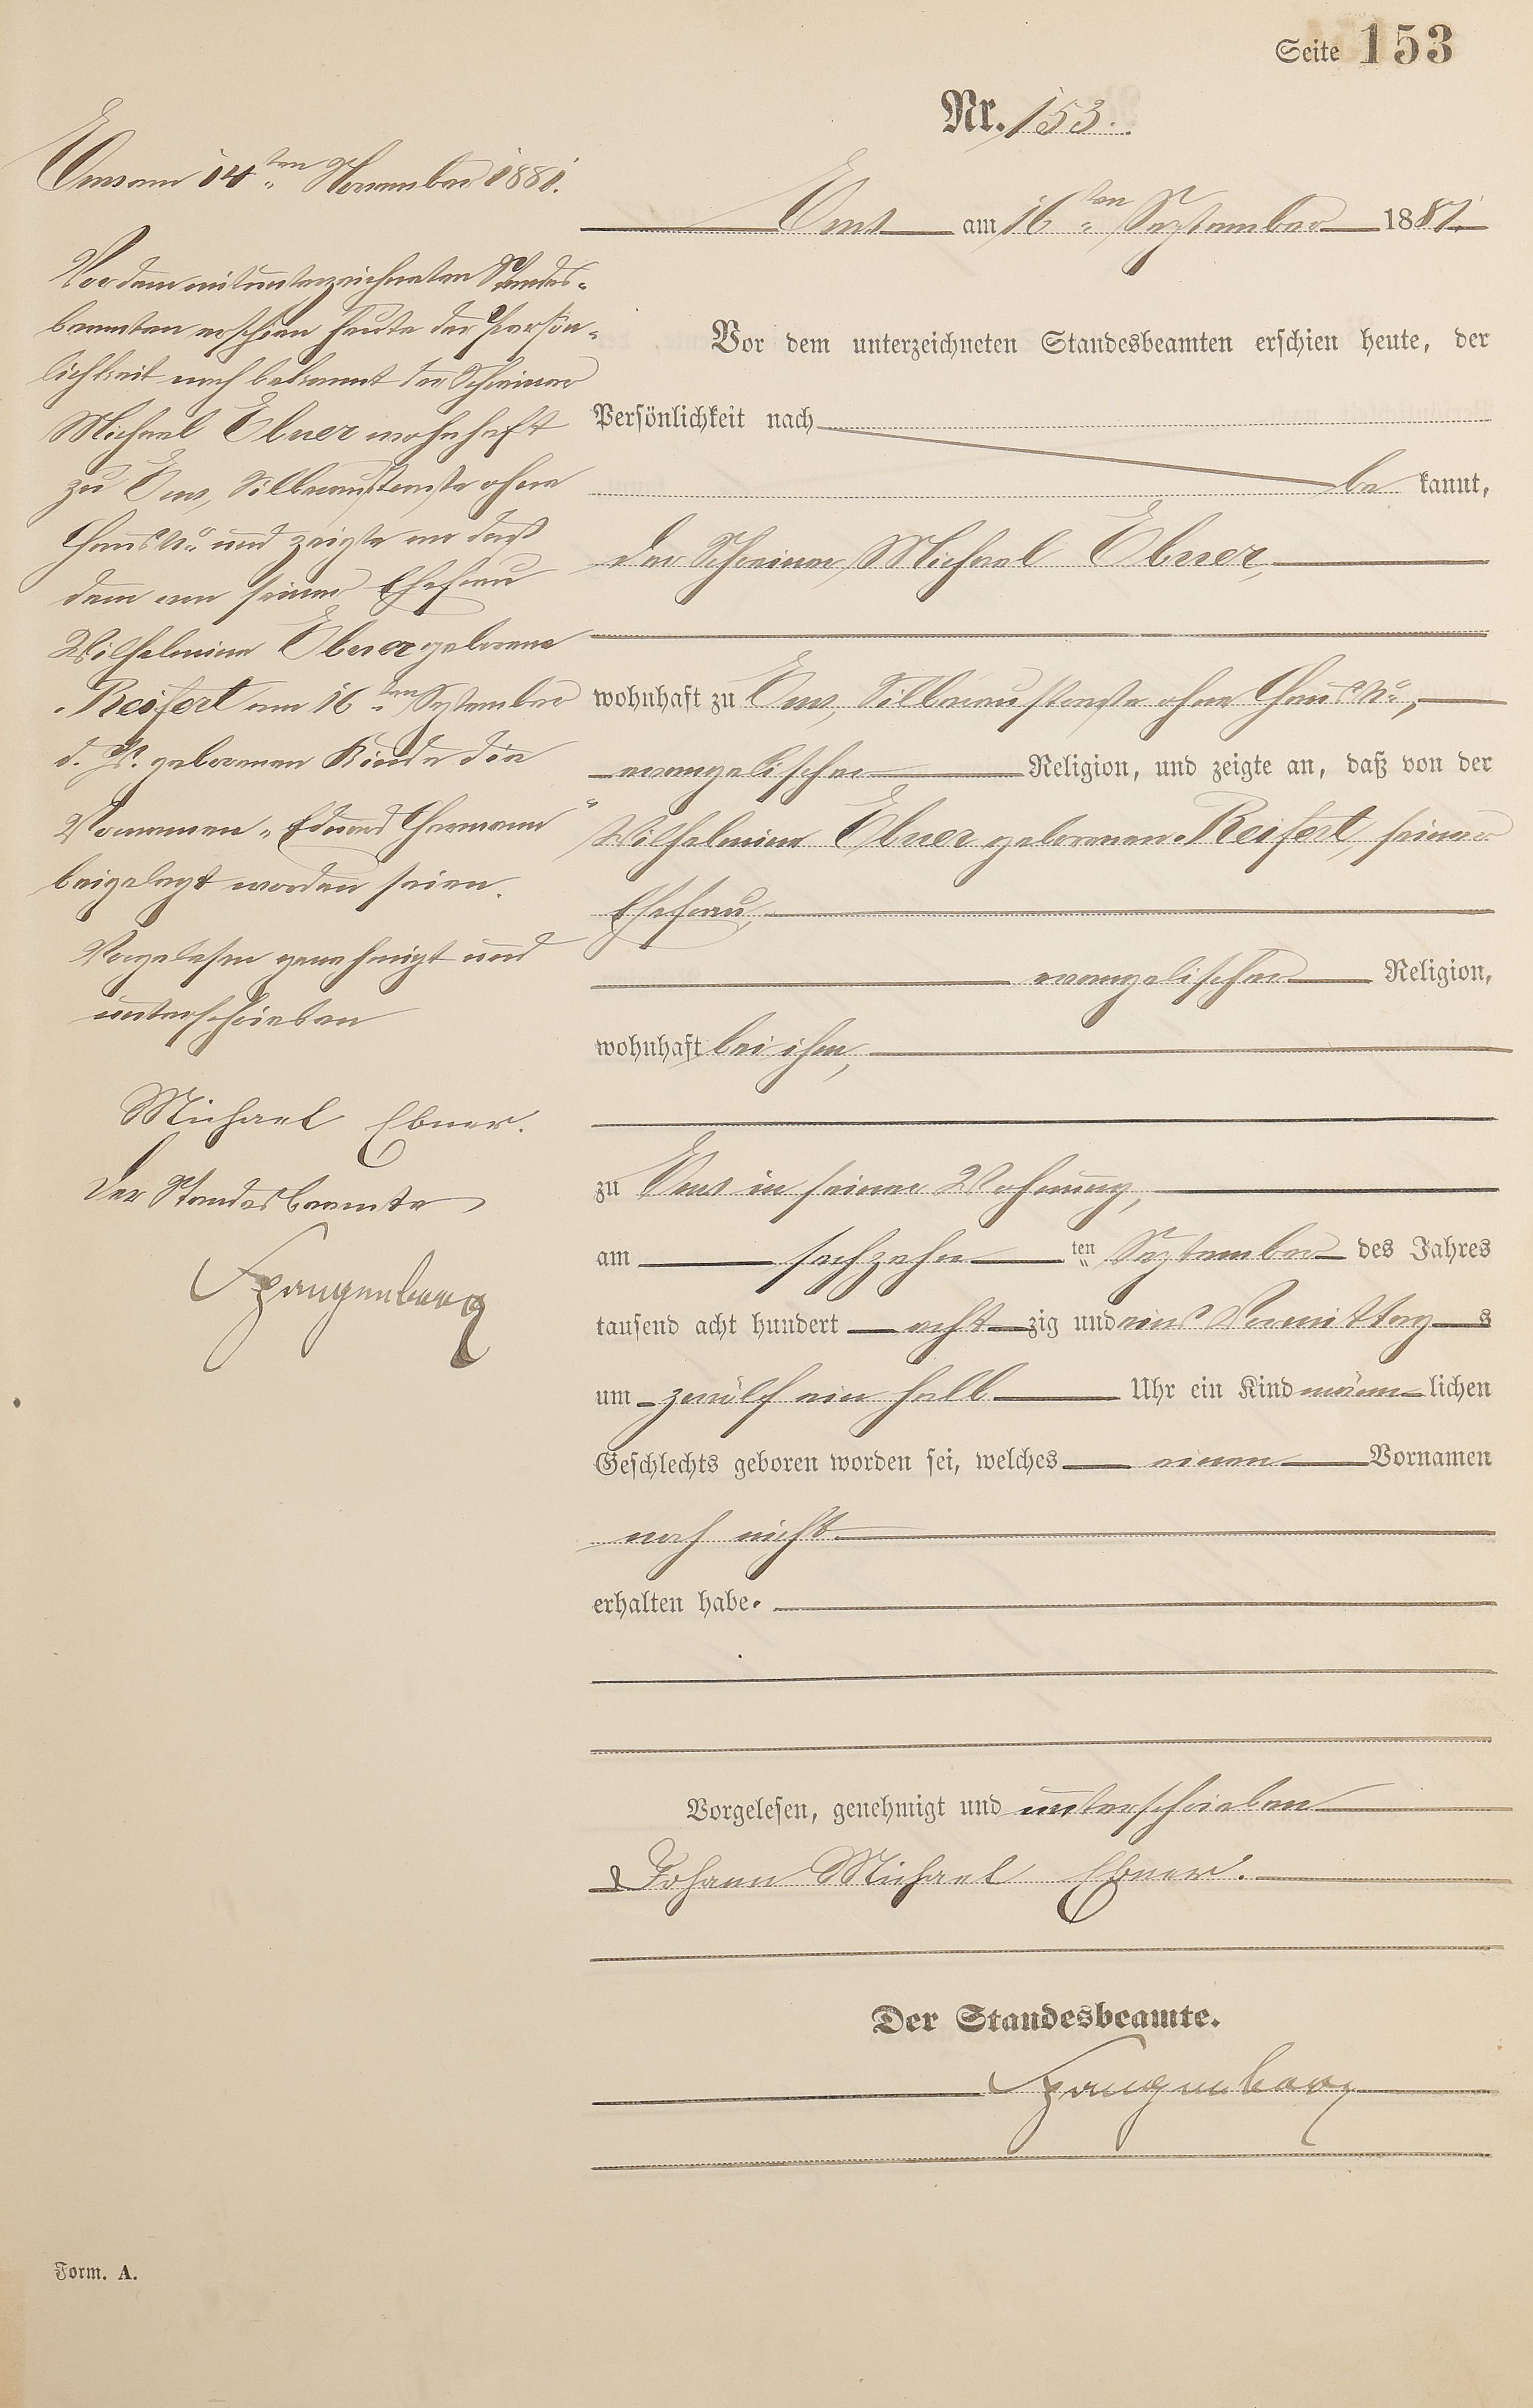 Seite 153
Nr. 153.
Ems am 16ten September 1881.
Vor dem unterzeichneten Standesbeamten erschien heute, der
Persönlichkeit nach
be kannt,
der Schreiner Michael Ebner,
wohnhaft zu Ems, Silberaustraße ohne Haus No,
evangelischer Religion, und zeigte an, daß von der
Wilhelmine Ebner geborenen Reifert, seiner
Ehefrau,
evangelischer Religion,
wohnhaft bei ihm,
zu Ems in seiner Wohnung,
am sechzehn ten September des Jahres
tausend acht hundert acht zig und eins Vormittag s
um zwölf ein halb Uhr ein Kind männ lichen
Geschlechts geboren worden sei, welches einen Vornamen
noch nicht
erhalten habe.
Vorgelesen, genehmigt und unterschrieben
Johann Michael Ebner.
Der Standesbeamte.
Spangenberg
Ems am 14ten November 1881.
Vor dem mitunterzeichneten Standes-
beamten erschien heute der Persön-
lichkeit nach bekannt der Schreiner
Michael Ebner wohnhaft
zu Ems, Silberaustraße ohne
Haus No und zeigte an daß
dem von seiner Ehefrau
Wilhelmine Ebner geborene
Reifert am 16ten September
d. Js. geborenen Kinde die
Vornamen „Eduard Hermann“
beigelegt worden seien.
Vorgelesen genehmigt und
unterschrieben
Michael Ebner.
Der Standesbeamte
Spangenberg
Form. A.